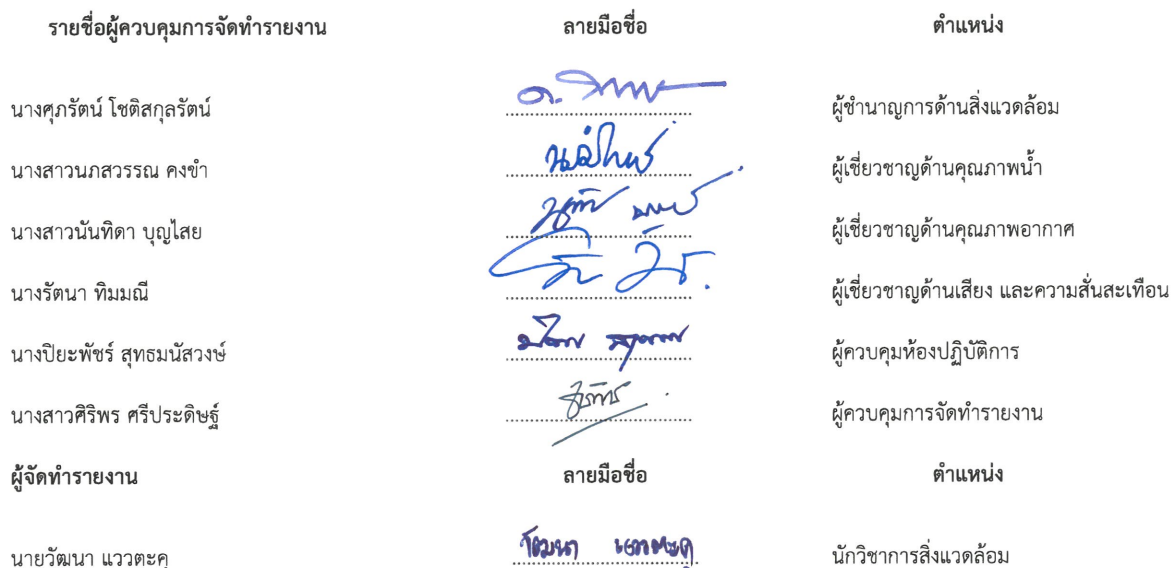 รายชื่อผู้ควบคุมการจัดทำรายงาน ลายมือชื่อ ตำแหน่ง
นางศุภรัตน์ โชติสกุลรัตน์ ผู้ชำนาญการด้านสิ่งแวดล้อม
นางสาวนภสวรรณ คงขำ ผู้เชี่ยวชาญด้านคุณภาพน้ำ
นางสาวนันทิดา บุญไสย ผู้เชี่ยวชาญด้านคุณภาพอากาศ
นางรัตนา ทิมมณี ผู้เชี่ยวชาญด้านเสียง และความสั่นสะเทือน
นางปิยะพัชร์ สุทธมนัสวงษ์ ผู้ควบคุมห้องปฏิบัติการ
นางสาวศิริพร ศรีประดิษฐ์ ผู้ควบคุมการจัดทำรายงาน
ผู้จัดทำรายงาน ลายมือชื่อ ตำแหน่ง
นายวัฒนา แววตะคุ วัฒนา แววตะคุ นักวิชาการสิ่งแวดล้อม